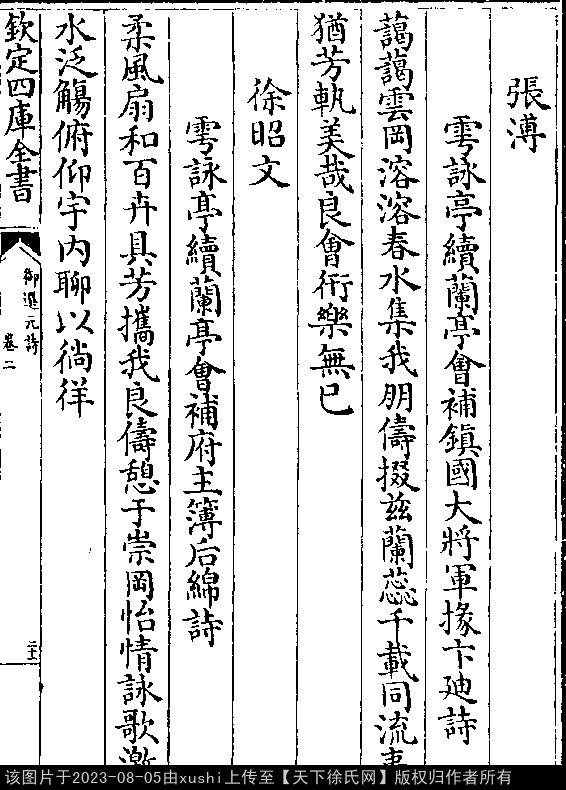 張溥
雩詠亭續蘭亭會補鎮國大將軍掾卞廸詩
藹藹雲岡溶溶春水集我朋儔掇兹蘭蕊千載同流
猶芳軌美哉良會衎樂無已
徐昭文
雩詠亭續蘭亭會補府主簿后綿詩
柔風扇和百卉具芳攜我良儔憩于崇岡怡情詠歌激
水泛觴俯仰宇内聊以徜徉
欽定四庫全書
御選元詩
卷二
二十二
该图片于2023-08-05由xushi上传至【天下徐氏网】版权归作者所有